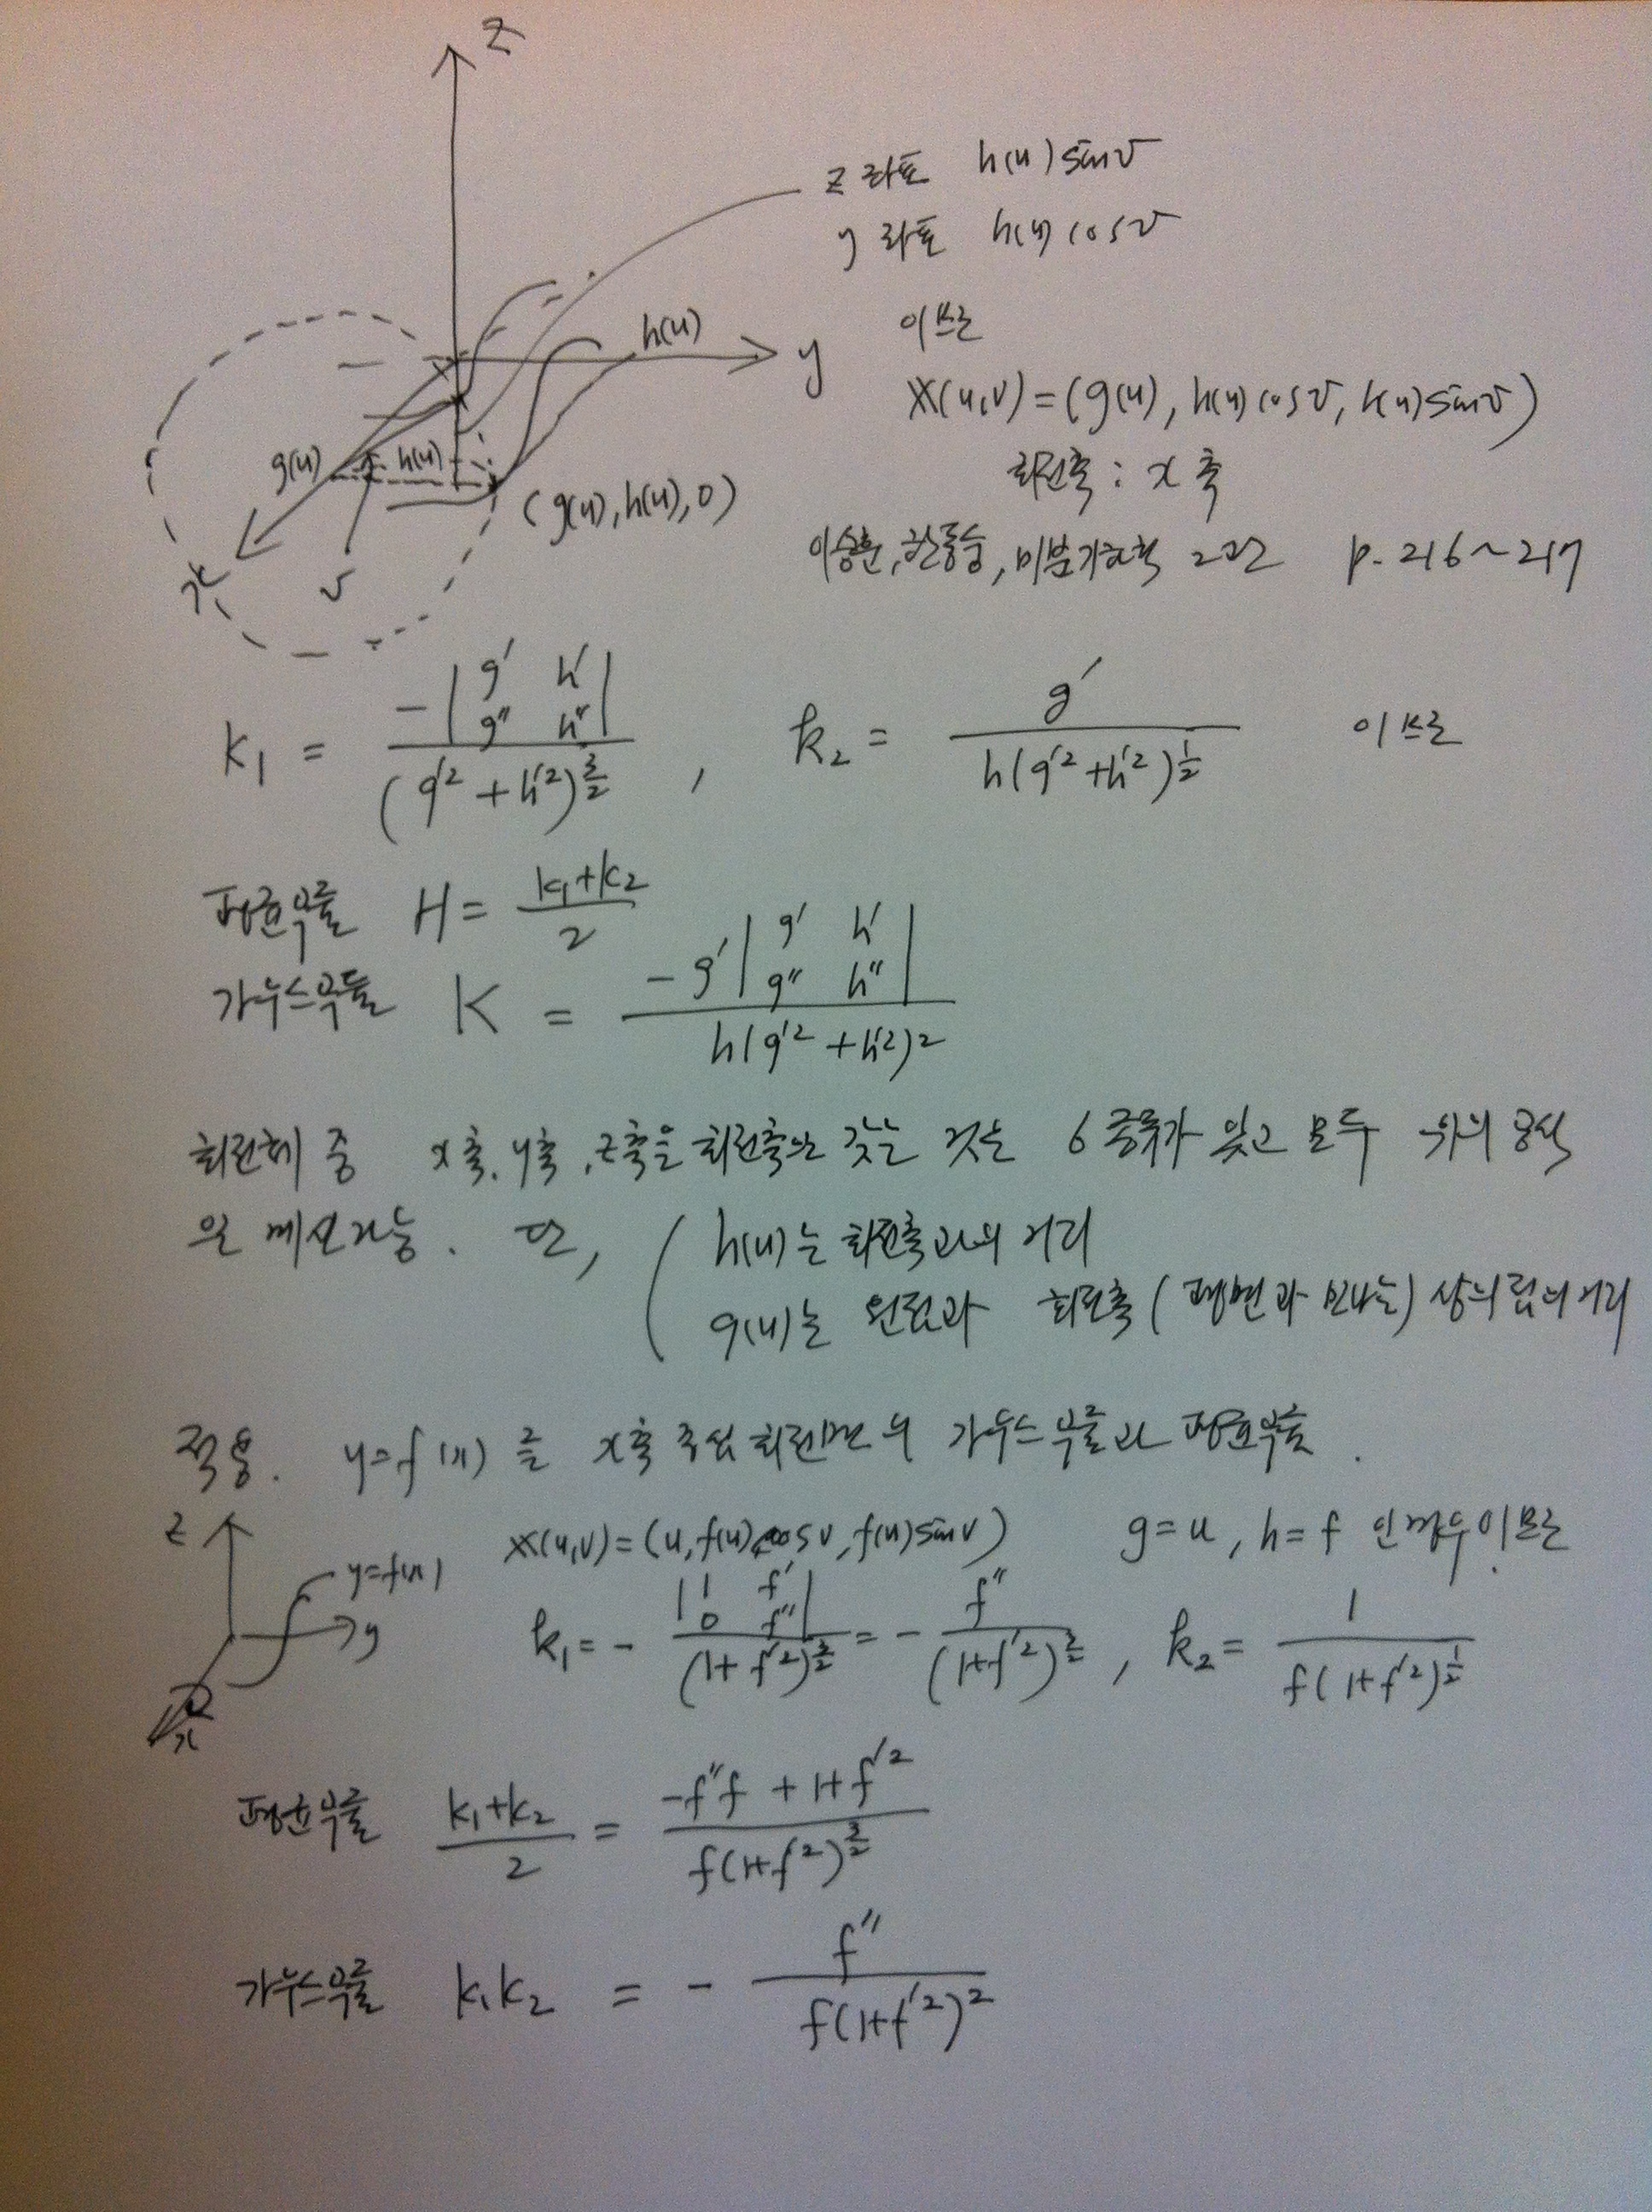 z
z좌표 h(u)sinv
y좌표 h(u)cosv
이므로
h(u)
y
X(u,v)=(g(u), h(u)cosv, h(u)sinv)
g(u) h(u)
회전축 : x축
(g(u), h(u), 0)
미분기하학 p. 216~217
x v
k₁ = -|g' h'; g'' h''| / (g'² + h'²)^(3/2) , k₂ = g' / h(g'²+h'²)^(1/2) 이므로
평균곡률 H = (k₁+k₂)/2
가우스곡률 K = -g'|g' h'; g'' h''| / h(g'²+h'²)²
회전체 중 x축, y축, z축을 회전축으로 갖는 것은 6종류가 있고 모두 위의 공식
으로 계산가능. 단, ( h(u)는 회전축과의 거리
g(u)는 원점과 회전축(평면과 만나는) 상의 점의 거리
적용. y=f(x)를 x축 중심 회전면의 가우스곡률과 평균곡률.
z
X(u,v)=(u, f(u)cosv, f(u)sinv) g=u, h=f 인 경우이므로.
y=f(x)
y
x
k₁ = - |1 f'; 0 f''| / (1+f'²)^(3/2) = - f'' / (1+f'²)^(3/2) , k₂ = 1 / f(1+f'²)^(1/2)
평균곡률 (k₁+k₂)/2 = (-f''f + 1+f'²) / f(1+f'²)^(3/2)
가우스곡률 k₁k₂ = - f'' / f(1+f'²)²